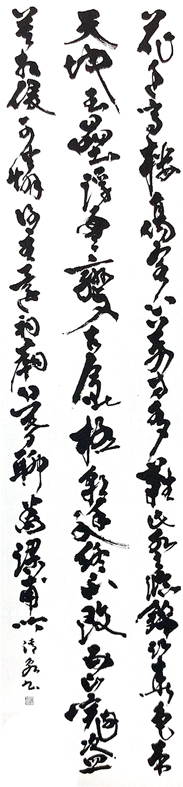 花近高樓傷客心萬方多難此登臨錦江春色來
天地玉壘浮雲變古今北極朝廷終不改西山寇盜
莫相侵可憐後主還祠廟日暮聊為梁甫吟